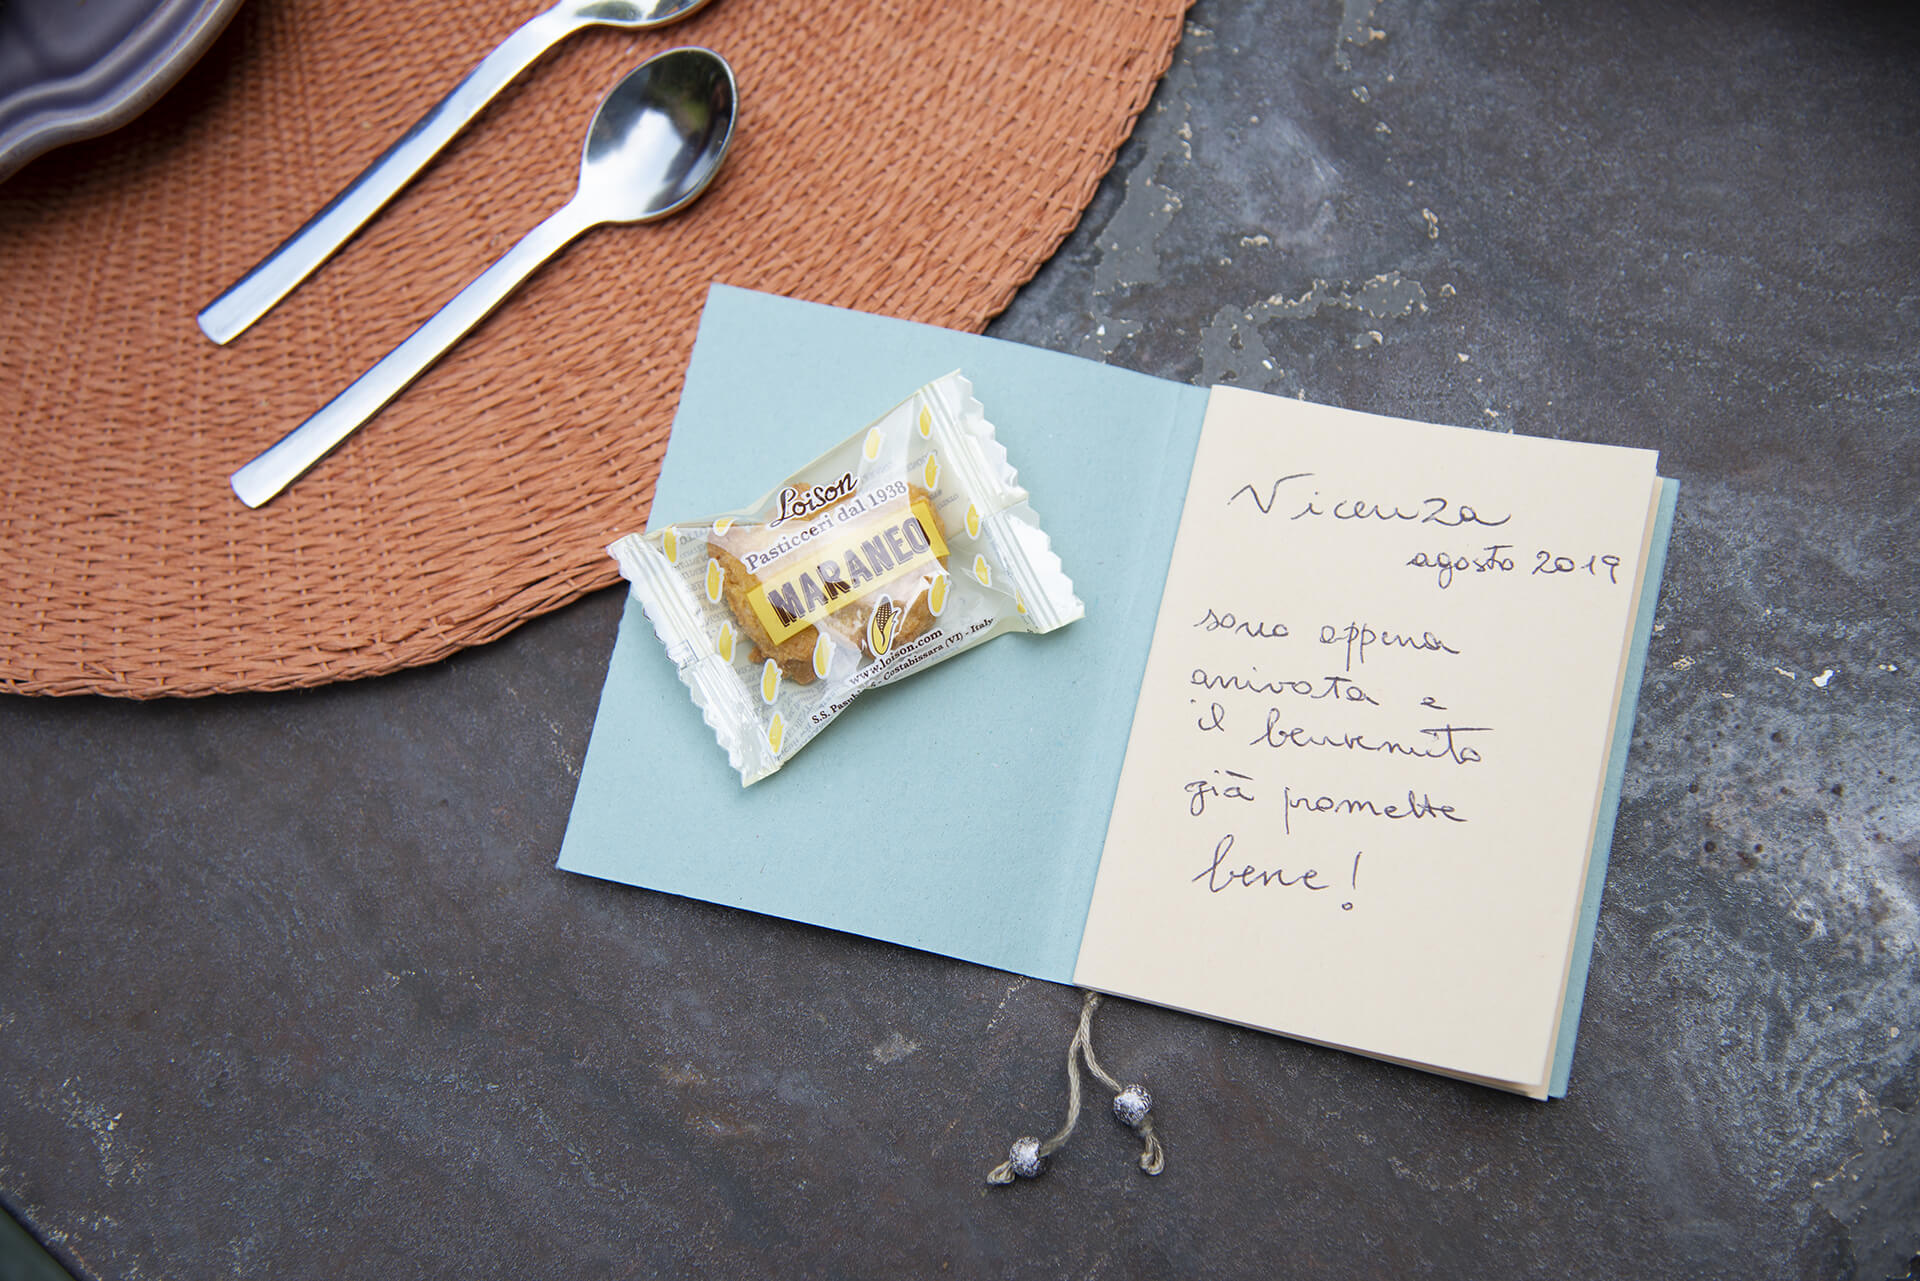 Loison
Pasticceri dal 1938
MARANEO
www.loison.com
S.S. Pasubio, 6 - Costabissara (VI) - Italy
Vicenza
agosto 2019
sono appena
arrivata e
il benvenuto
già promette
bene!